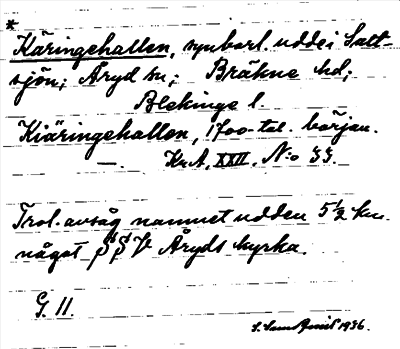 *
Käringehallen, synbarl. udde i Salt-
sjön; Åryd sn; Bräkne hd;
Blekinge l.
Kiäringehallen, 1700-tal. början.
—. Kr.A. XXII. N:o 33.
Trol. avsåg namnet udden 5½ km.
något SSV Åryds kyrka.
G. 11.
1936.